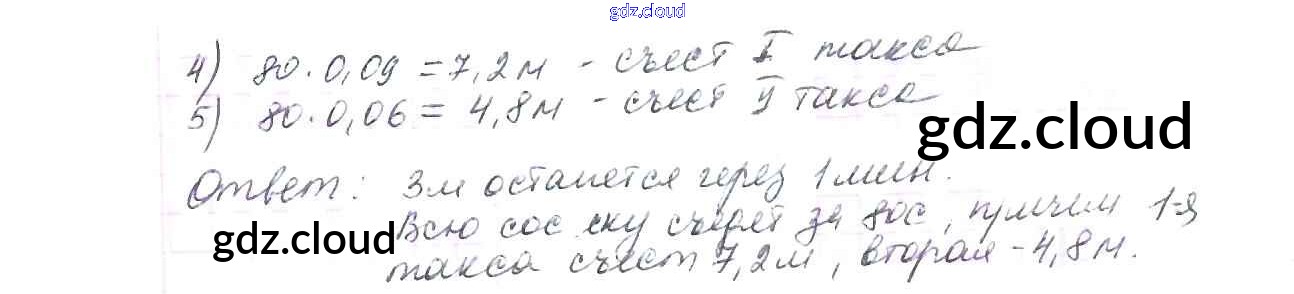 gdz.cloud
4) 80·0,09 = 7,2м - съест I такса
5) 80·0,06 = 4,8м - съест II такса
gdz.cloud
Ответ: 3м останется через 1 мин.
Всю сосиску съедят за 80с, причем 1-я
gdz.cloud
такса съест 7,2м, вторая - 4,8м.